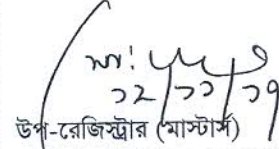 ১২/১১/১৭
উপ-রেজিস্ট্রার (মাস্টার্স)